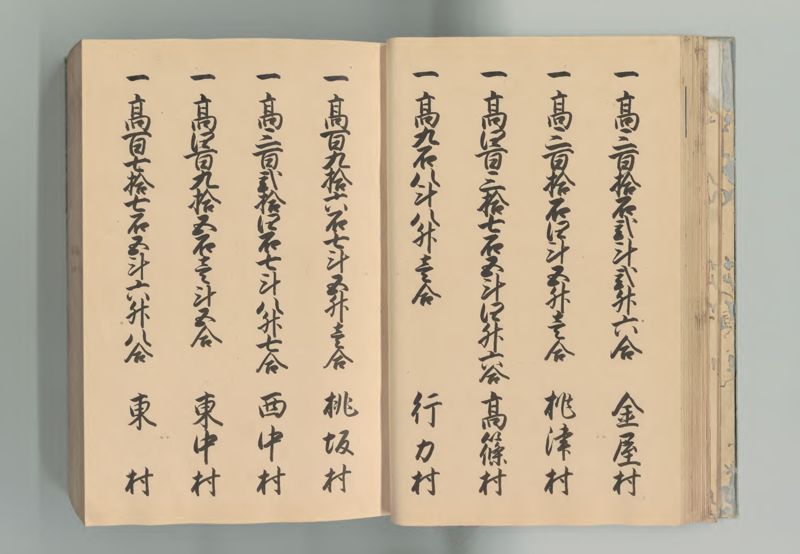 一 高三百拾石弐斗弐升六合 金屋村
一 高三百拾石四斗五升壱合 桃津村
一 高四百三拾七石五斗四升六合 高篠村
一 高九石八斗八升壱合 行力村
一 高百九拾六石七斗五升壱合 桃坂村
一 高三百弐拾四石七斗八升七合 西中村
一 高四百九拾五石壱斗五合 東中村
一 高百七拾七石五斗六升八合 東村